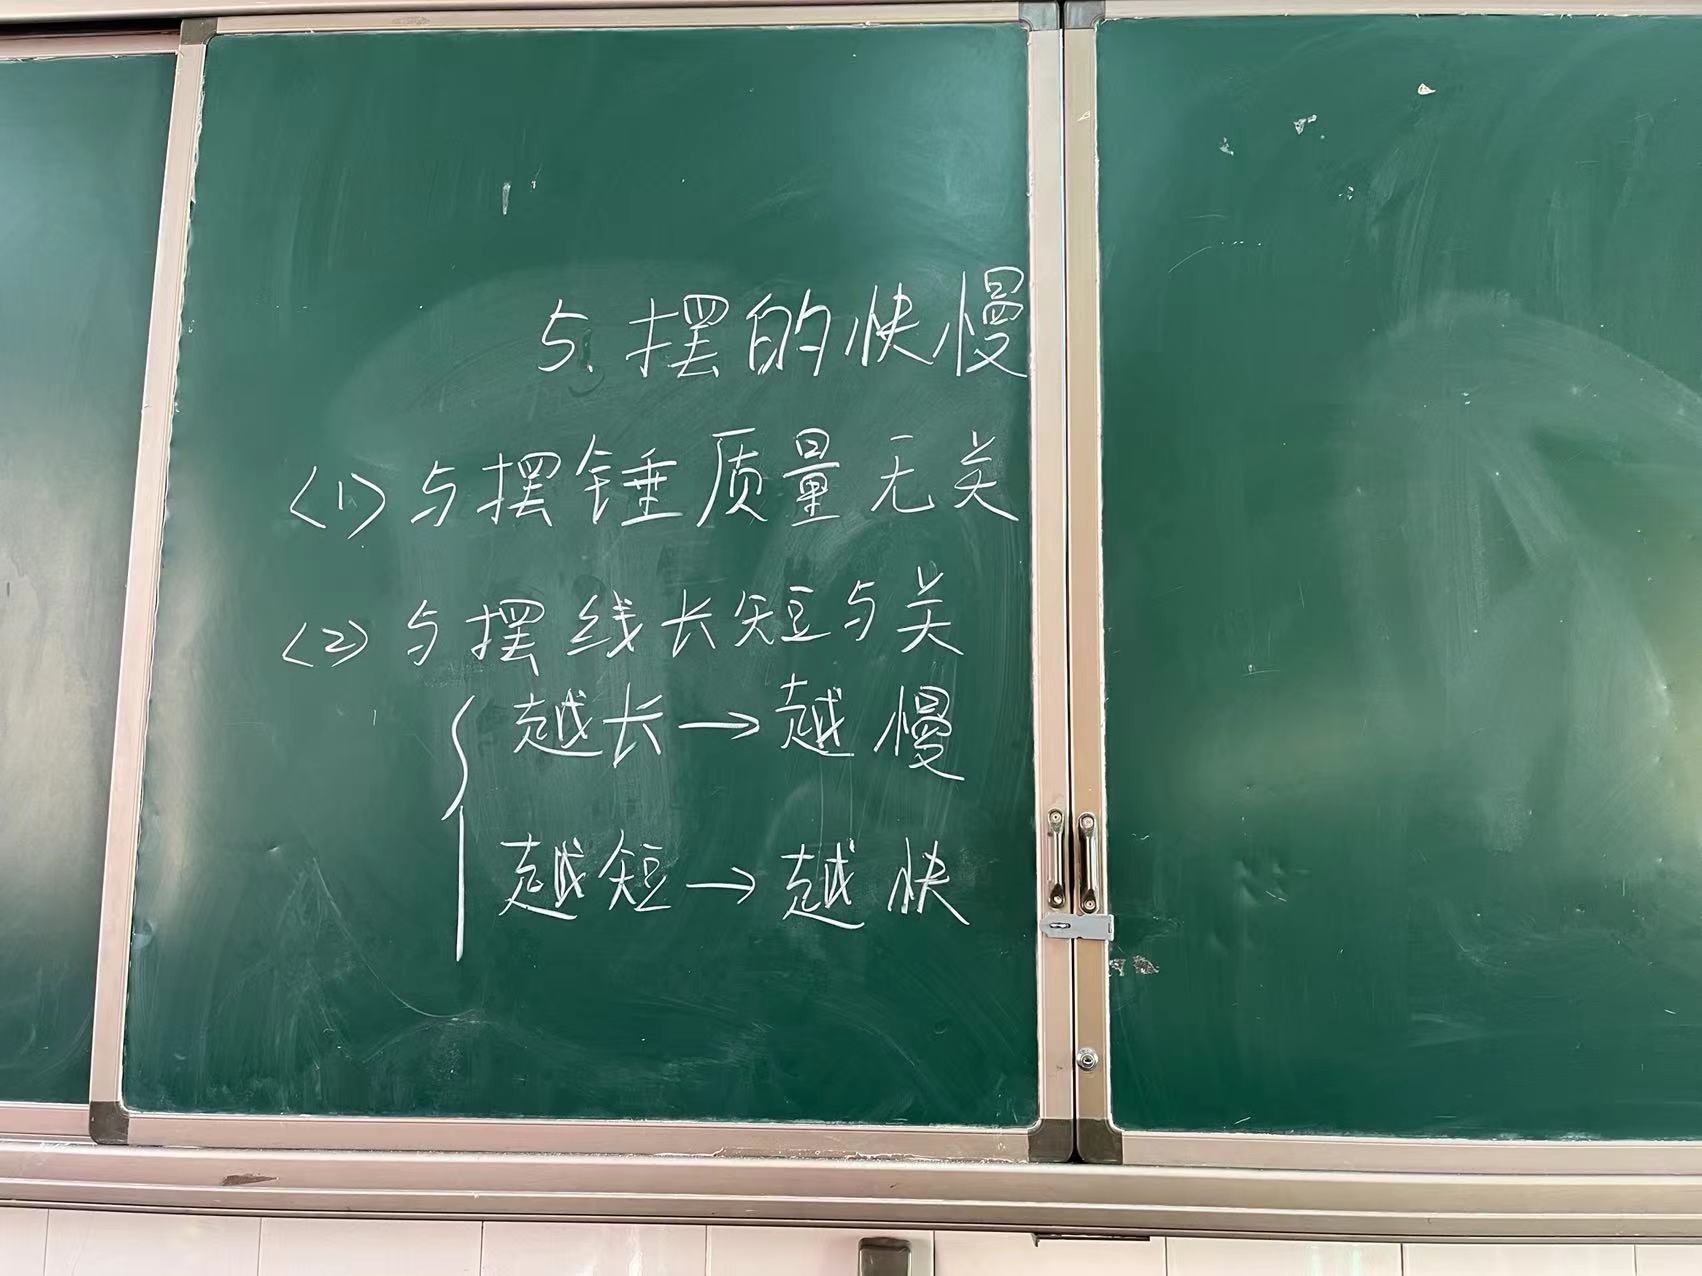 5. 摆的快慢
<1> 与摆锤质量无关
<2> 与摆线长短与关
越长→越慢
越短→越快